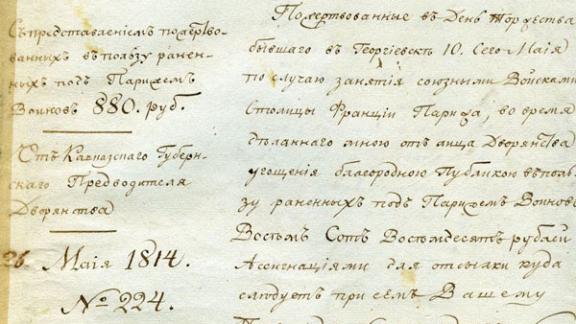 Съ представленіемъ пожертво-
ванныхъ въ пользу ранен-
ныхъ подъ Парижемъ
Воиновъ 880. руб.
Отъ Кавказскаго Губерн-
скаго Предводителя
Дворянства
26. Маія 1814.
№ 224.
Пожертвованные въ День Торжества
бывшаго въ Георгіевскѣ 10. Сего Маія
по случаю занятія союзными Войсками
Столицы Франціи Парижа, во время
зделаннаго мною отъ лица Дворянства
угощенія благородною Публикою въ поль-
зу раненныхъ подъ Парижемъ Воиновъ
Восемь Сотъ Восемдесятъ рублей
Асигнаціями для отсылки куда
слѣдуетъ при семъ Вашему